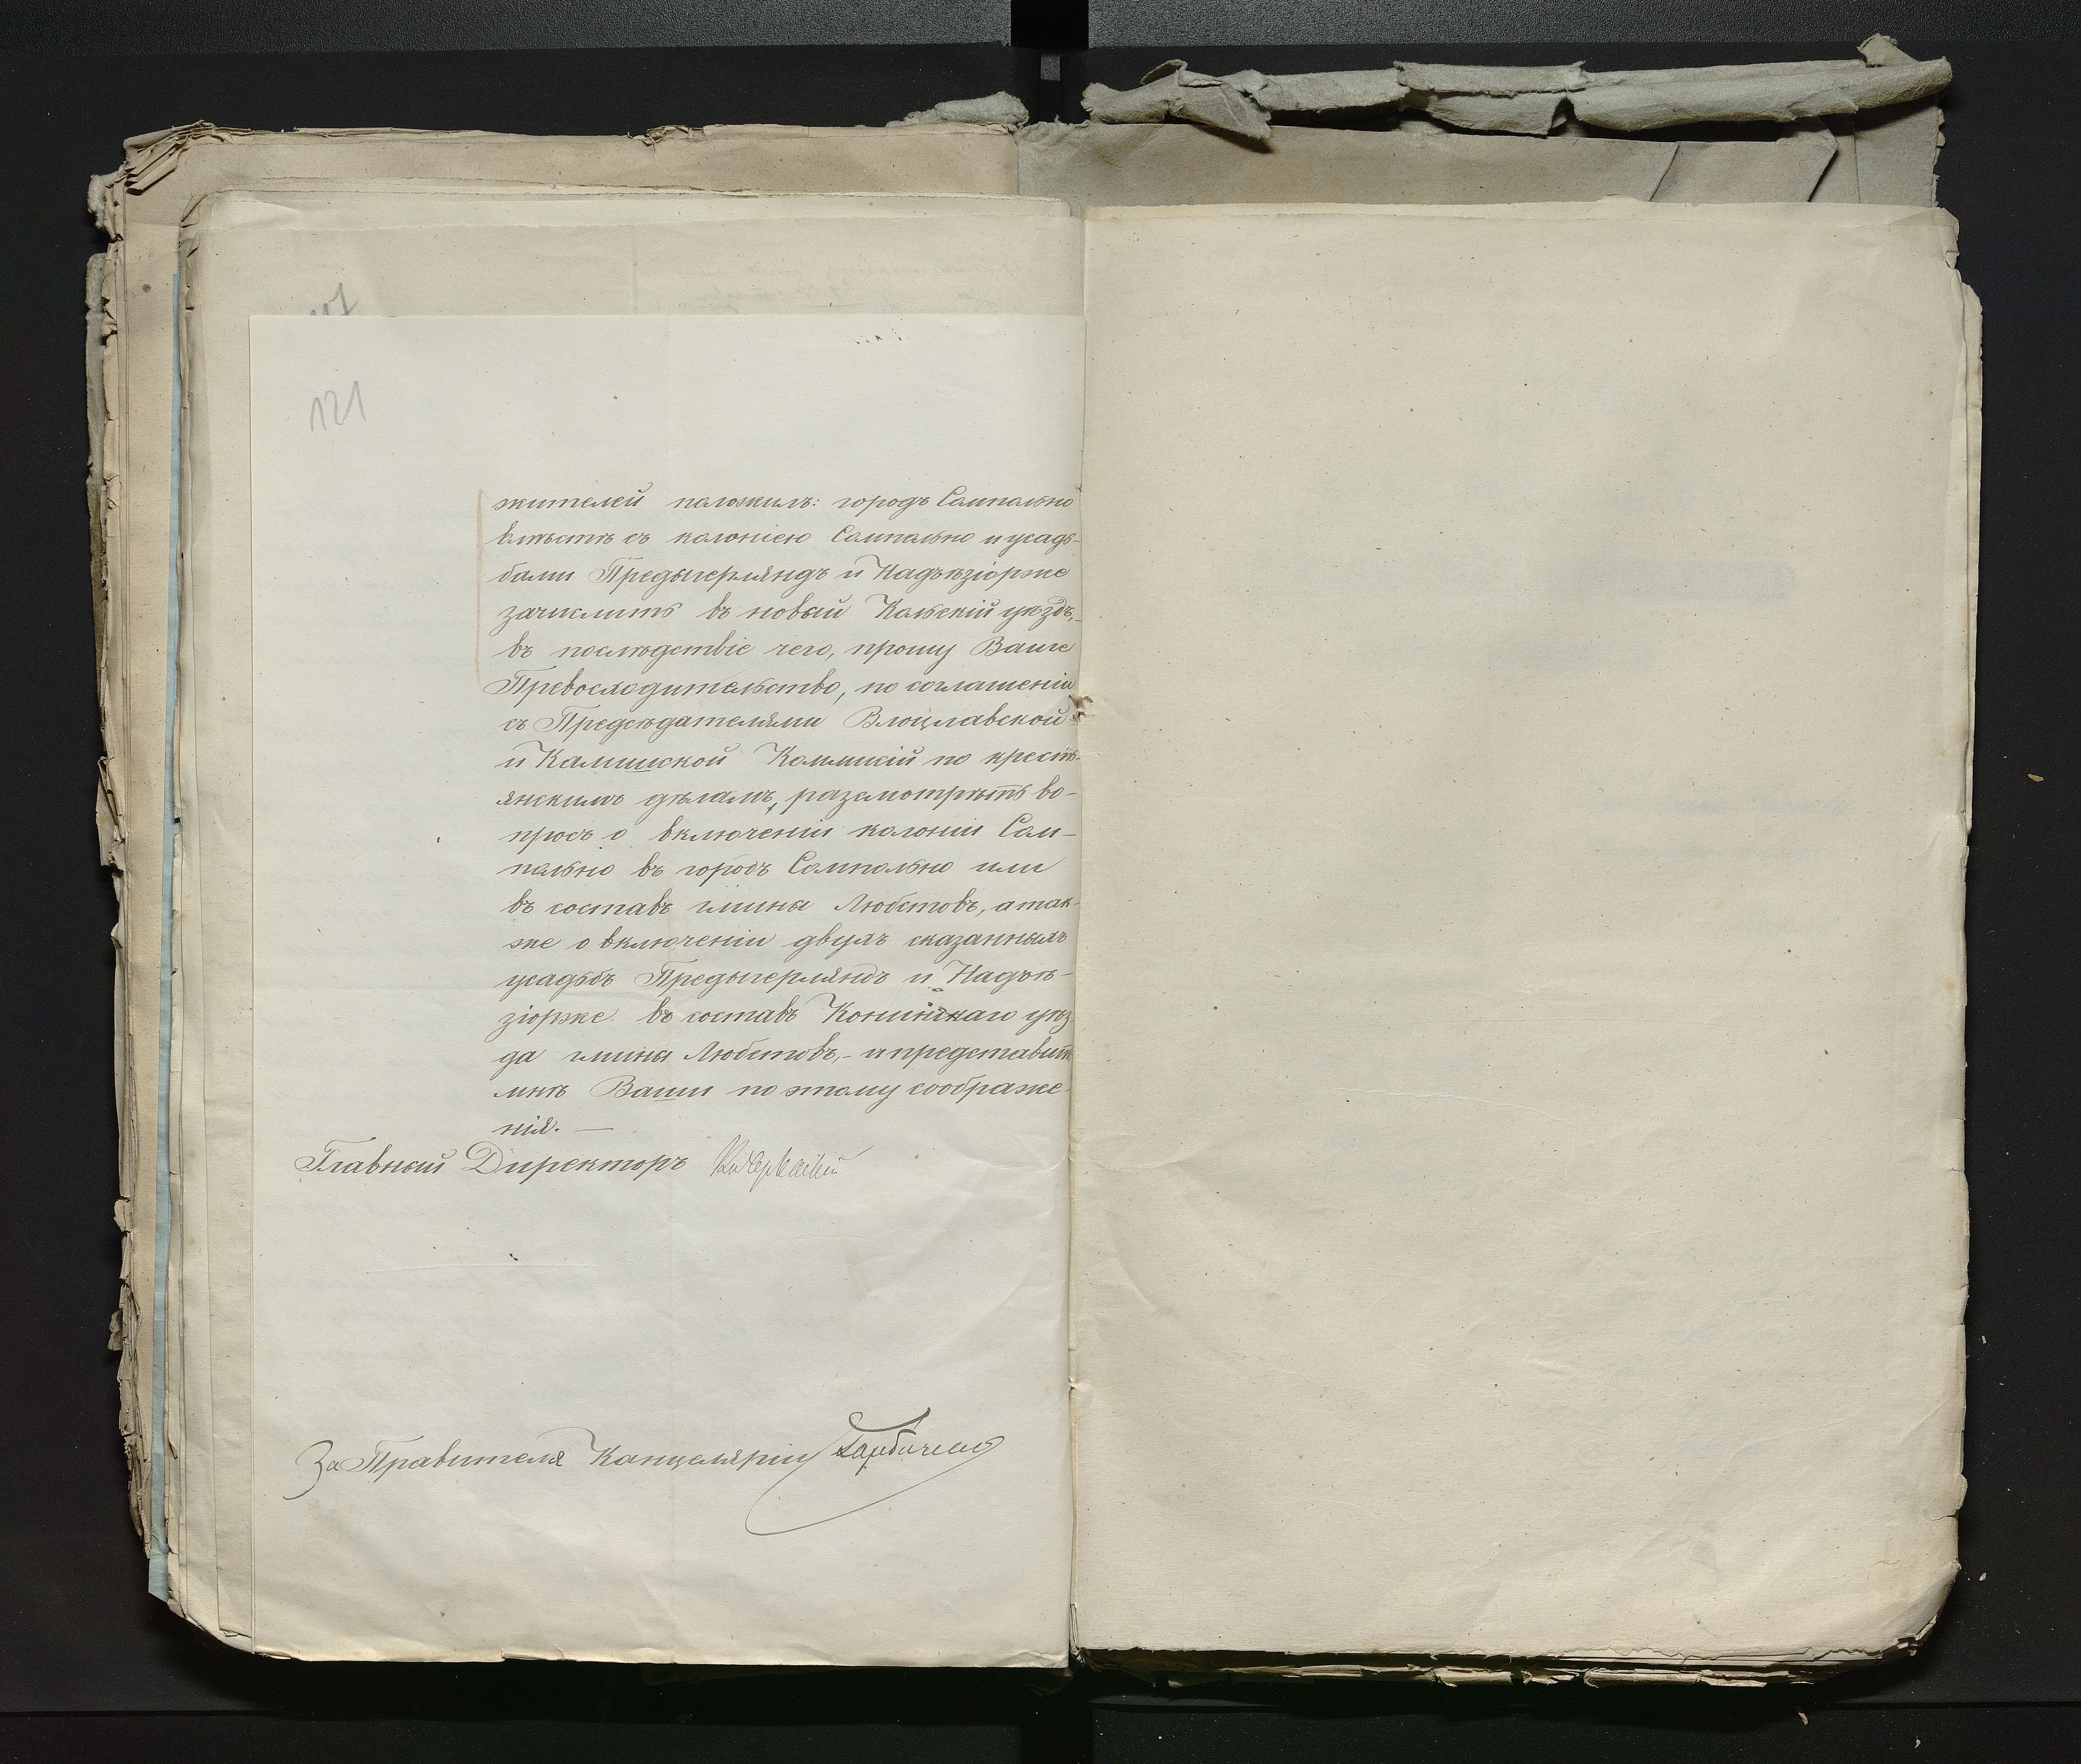 121
жителей положилъ: городъ Сомпольно
вмѣстѣ съ колоніею Сомпольно и усадь-
бами Предыгерляндъ и Надъѣзіорже
зачислить въ новый Кольскій уѣздъ,-
въ послѣдствіе чего, прошу Ваше
Превосходительство, по соглашенію
съ Предсѣдателями Влоцлавской
и Калишской Коммисій по кресть-
янскимъ дѣламъ, разсмотрѣть во-
просъ о включеніи колоніи Сом-
польно въ городъ Сомпольно или
въ составъ гмины Любстовъ, а так-
же о включеніи двухъ сказанныхъ
усадьбъ Предыгерляндъ и Надъѣ-
зіорже въ составъ Конинскаго уѣз-
да гмины Любстовъ,- и представить
мнѣ Ваши по этому соображе-
нія. —
Главный Директоръ
За Правителя Канцеляріи